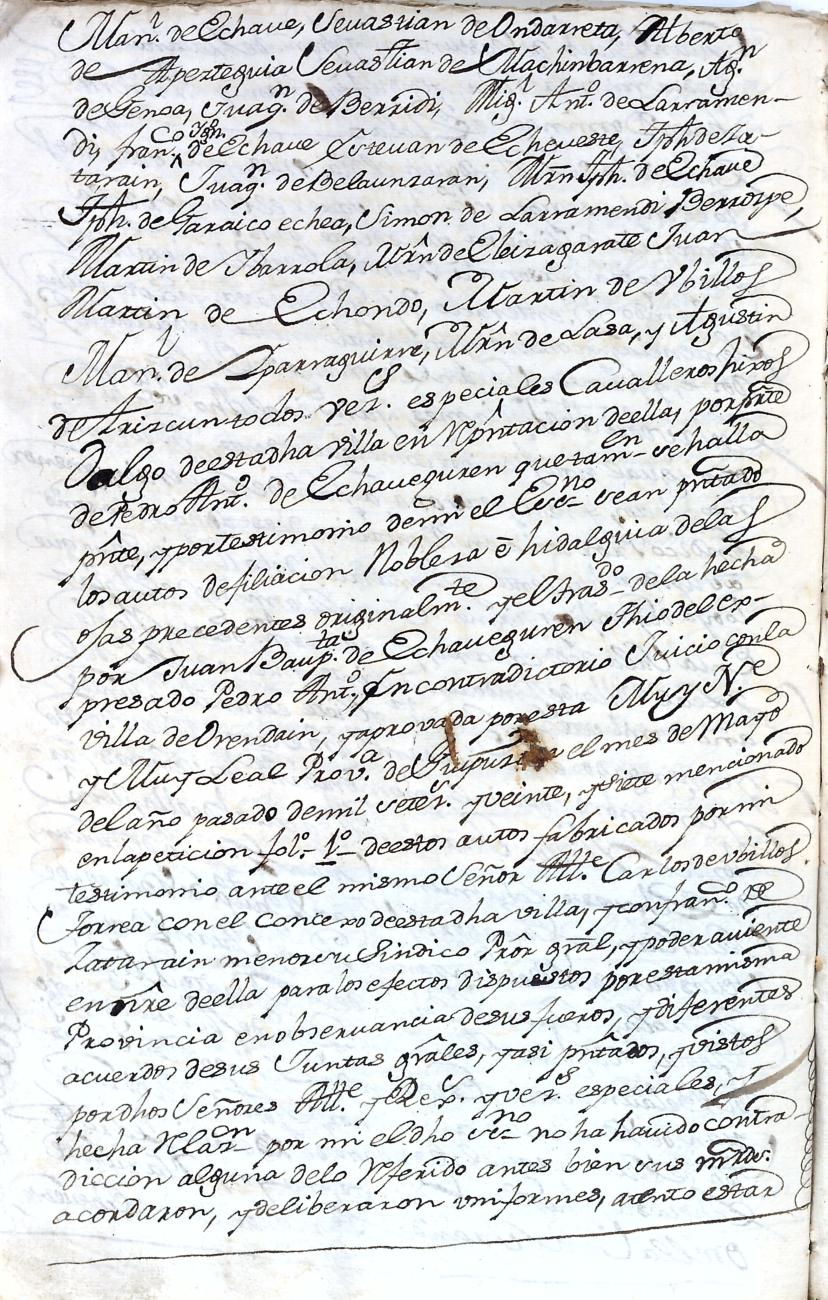 Man.l de Echave, Sevastian de Ondarreta, Alberto
de Aperteguia Sevastian de Machinbarrena, Ag.n
de Genoa, Juaq.n de Berridi, Mig.l Ant.o de Larramen-
di, fran.co Ign.o de Echave Estevan de Echeveste, Jph de Za-
tarain, Juaq.n de Belaunzaran, Mrn Jph. de Echave
Jph. de Garaicoechea, Simon de Larramendi Berrospe,
Martin de Ybarrola, Mrn de Eleizagarate Juan
Martin de Echondo, Martin de Vbillos
Man.l de Yparraguirre, Mrn de Lasa, y Agustin
de Arizcun todos vez.s especiales Cavalleros hixos
Dalgo de esta dha villa en Rpntacion de ella, por prte
de Pedro Ant.o de Echaveguren que tam-en se halla
pnte, y por testimonio de mi el Es-no se an pntado
los autos de filiacion Nobleza è hidalguia de las
ojas precedentes original m.te y el tras-do de la hecha
por Juan Baup.ta de Echaveguren Thio del ex-
presado Pedro Ant.o, En contradictorio Juicio con la
villa de Orendain, y aprovada por esta Muy N.e
y Muy Leal Prov.a de Guipuzcoa el mes de Mayo
del año pasado de mil setez.s y veinte, y siete mencionado
en la peticion fol.o 1.o de estos autos fabricados por mi
testimonio ante el mismo Señor All.e Carlos de Vbillos
Jorrea con el Concexo de esta dha villa, y con fran.co de
Zatarain menor su Sindico Prôr gral, y poder aviente
en nre de ella para los efectos dispuestos por esta misma
Provincia en observancia de sus fueros, y diferentes
acuerdos de sus Juntas grales, y asi pntados, y vistos
por dhos Señores All.e y Rex.s y vez.s especiales, y
hecha Rlaz-on por mi el dho es-no no ha havido contra-
diccion alguna de lo Referido antes bien sus mrds.
acordaron, y deliberaron vniformes, atento estar